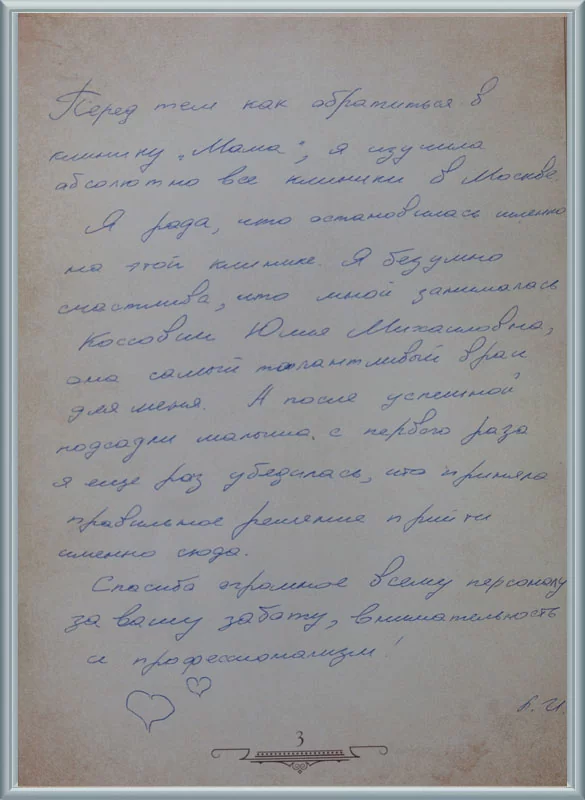 Перед тем как обратиться в
клинику "Мама", я изучила
абсолютно все клиники в Москве.
Я рада, что остановилась именно
на этой клинике. Я безумно
счастлива, что мной занималась
Коссович Юлия Михайловна,
она самый талантливый врач
для меня. А после успешной
подсадки малыша с первого раза
я еще раз убедилась, что приняла
правильное решение прийти
именно сюда.
Спасибо огромное всему персоналу
за вашу заботу, внимательность
и профессионализм!
3